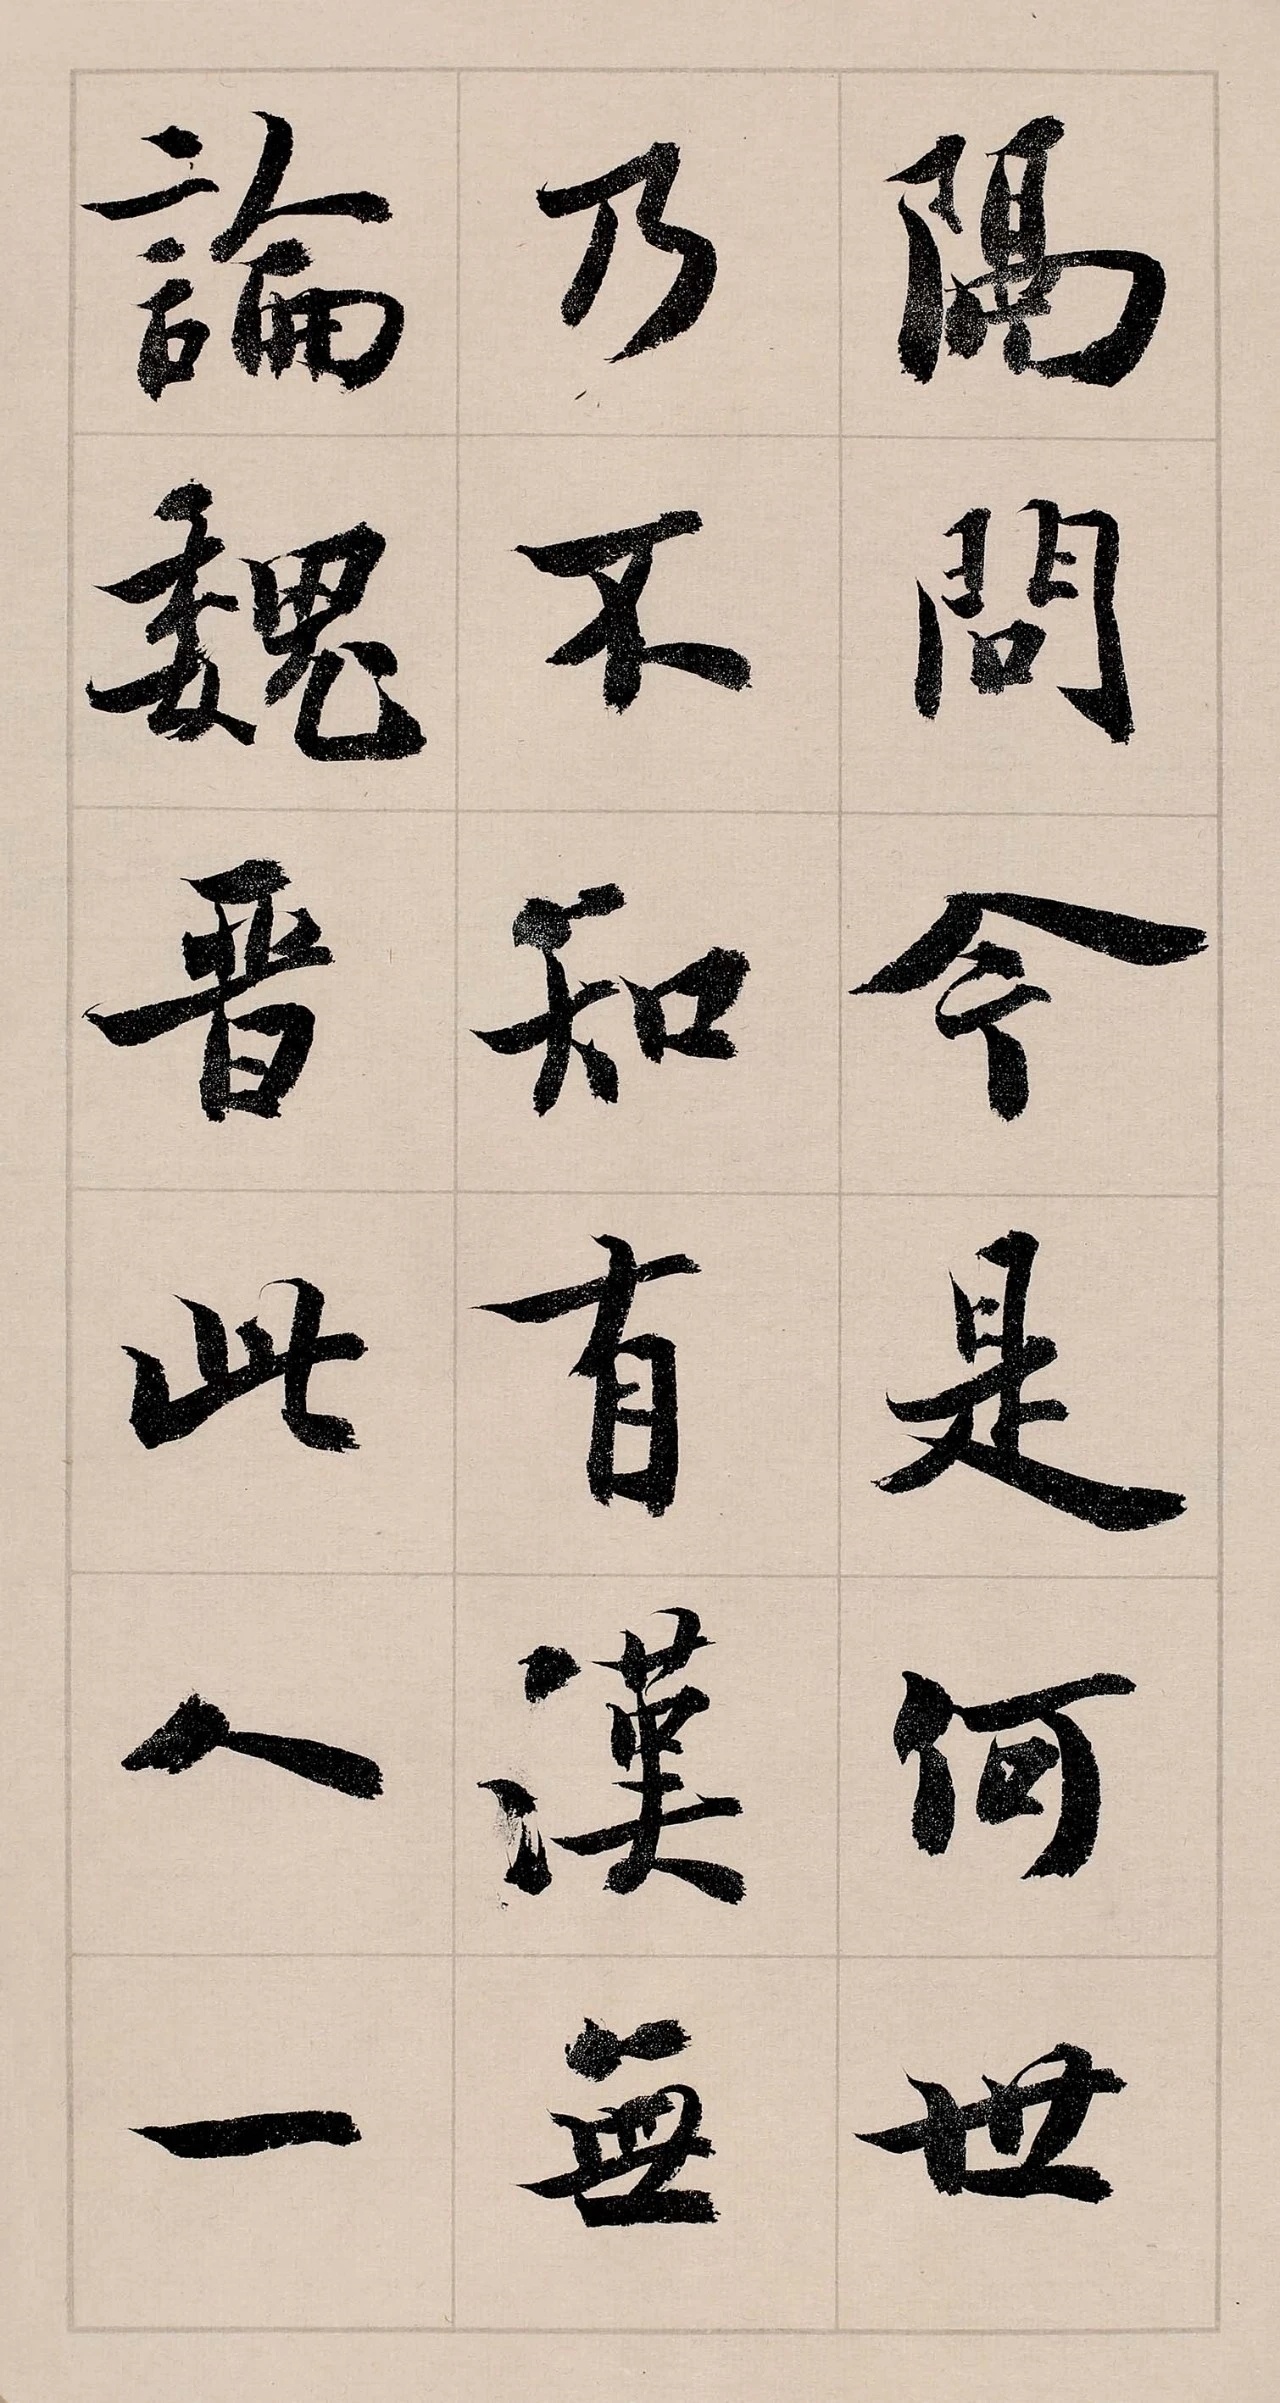 隔問今是何世
乃不知有漢無
論魏晋此人一